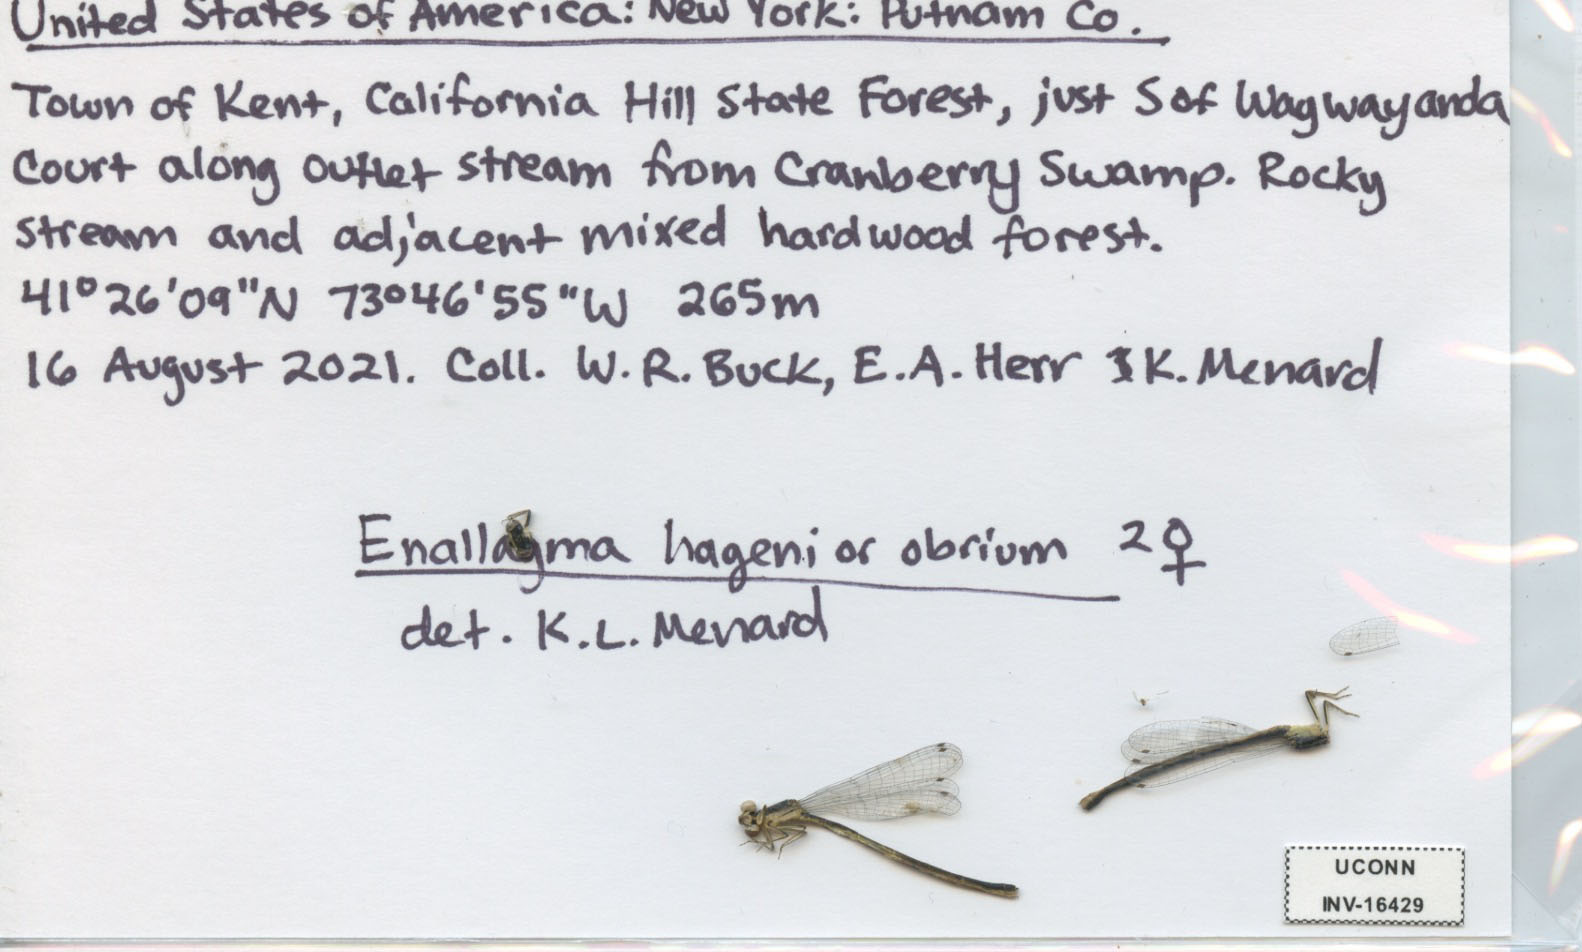 United States of America: New York: Putnam Co.
Town of Kent, California Hill State Forest, just S of Wagwayanda
Court along outlet stream from Cranberry Swamp. Rocky
stream and adjacent mixed hardwood forest.
41°26'09"N 73°46'55"W 265m
16 August 2021. Coll. W.R. Buck, E.A. Herr & K. Menard
Enallagma hageni or obrium 2♀
det. K.L. Menard
UCONN
INV-16429